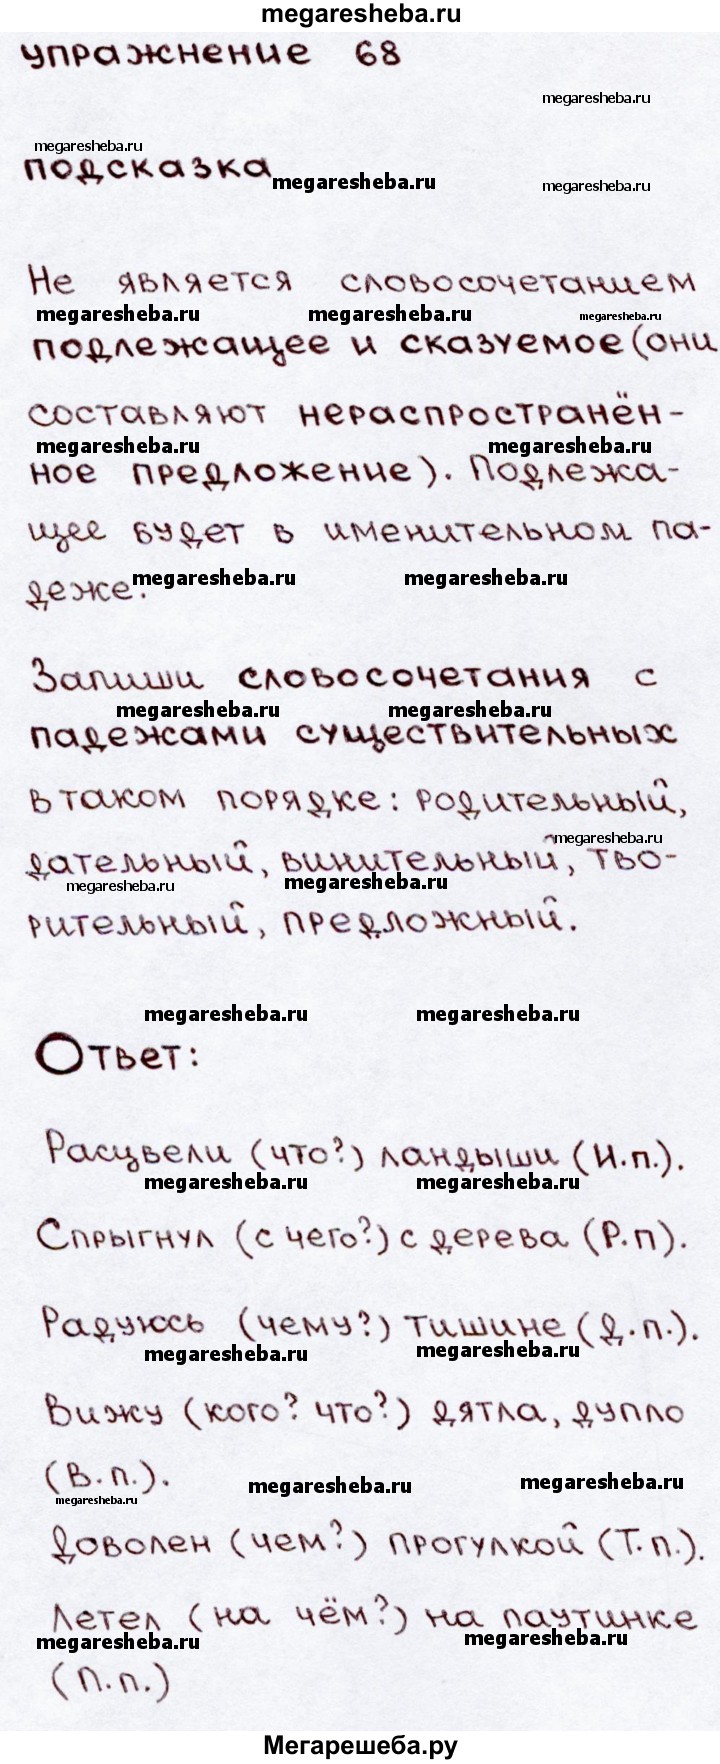 megaresheba.ru
упражнение 68
megaresheba.ru
megaresheba.ru
подсказка
megaresheba.ru
megaresheba.ru
Не является словосочетанием
megaresheba.ru megaresheba.ru megaresheba.ru
подлежащее и сказуемое (они
составляют нераспространён-
megaresheba.ru megaresheba.ru
ное предложение). Подлежа-
щее будет в именительном па-
megaresheba.ru megaresheba.ru
деже.
Запиши словосочетания с
megaresheba.ru megaresheba.ru
падежами существительных
в таком порядке: родительный,
megaresheba.ru
дательный, винительный, тво-
megaresheba.ru megaresheba.ru
рительный, предложный.
megaresheba.ru megaresheba.ru
Ответ:
Расцвели (что?) ландыши (И.п.).
megaresheba.ru megaresheba.ru
Спрыгнул (с чего?) с дерева (Р.п).
Радуюсь (чему?) тишине (Д.п.).
megaresheba.ru megaresheba.ru
Вижу (кого? что?) дятла, дупло
(В.п.).
megaresheba.ru megaresheba.ru
megaresheba.ru
Доволен (чем?) прогулкой (Т.п.).
Летел (на чём?) на паутинке
megaresheba.ru megaresheba.ru
(П.п.)
Мегарешеба.ру